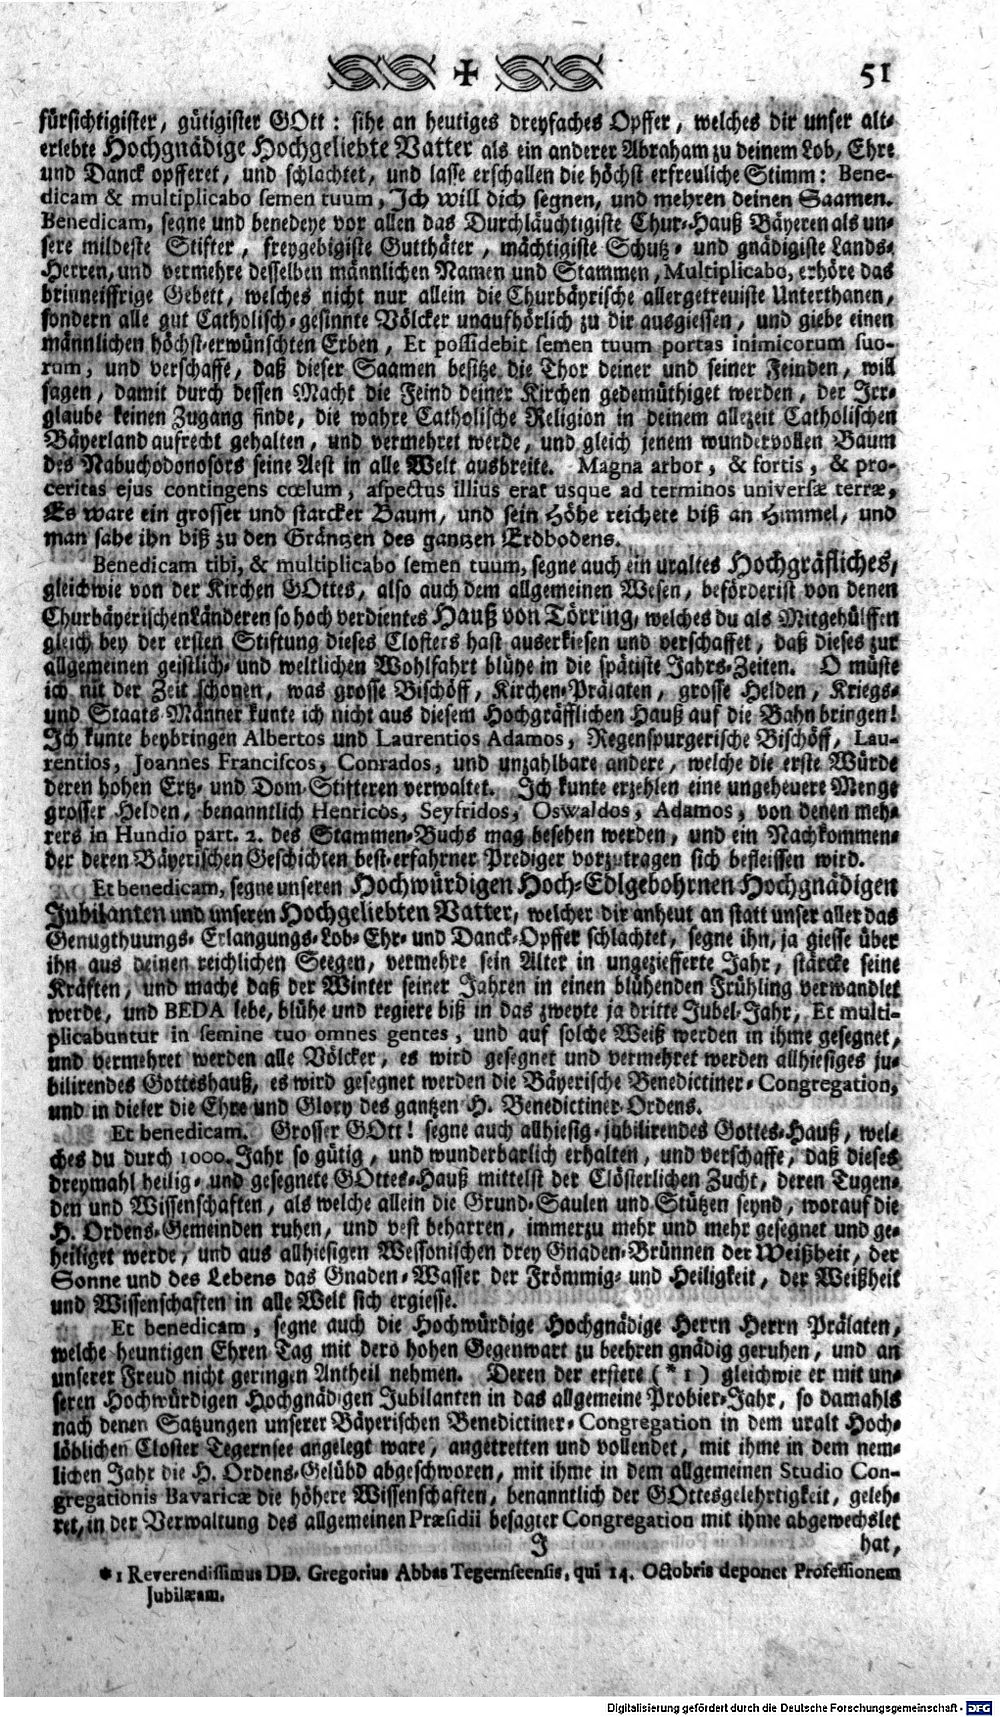 ✠ 51
fürsichtigister, gütigister GOtt: sihe an heutiges dreyfaches Opffer, welches dir unser alt-
erlebte Hochgnädige Hochgeliebte Vatter als ein anderer Abraham zu deinem Lob, Ehre
und Danck opfferet, und schlachtet, und lasse erschallen die höchst erfreuliche Stimm: Bene-
dicam & multiplicabo semen tuum, Ich will dich segnen, und mehren deinen Saamen.
Benedicam, segne und benedeye vor allen das Durchläuchtigiste Chur-Hauß Bäyeren als un-
sere mildeste Stifter, freygebigiste Gutthäter, mächtigiste Schutz- und gnädigiste Lands-
Herren, und vermehre desselben männlichen Namen und Stammen, Multiplicabo, erhöre das
brinneiffrige Gebett, welches nicht nur allein die Churbäyrische allergetreuiste Unterthanen,
sondern alle gut Catholisch-gesinnte Völcker unaufhörlich zu dir ausgiessen, und giebe einen
männlichen höchst-erwünschten Erben, Et possidebit semen tuum portas inimicorum suo-
rum, und verschaffe, daß dieser Saamen besitze die Thor deiner und seiner Feinden, will
sagen, damit durch dessen Macht die Feind deiner Kirchen gedemüthiget werden, der Irr-
glaube keinen Zugang finde, die wahre Catholische Religion in deinem allezeit Catholischen
Bäyerland aufrecht gehalten, und vermehret werde, und gleich jenem wundervollen Baum
des Nabuchodonosors seine Aest in alle Welt ausbreite. Magna arbor, & fortis, & pro-
ceritas ejus contingens cœlum, aspectus illius erat usque ad terminos universæ terræ,
Es ware ein grosser und starcker Baum, und sein Höhe reichete biß an Himmel, und
man sahe ihn biß zu den Gräntzen des gantzen Erdbodens.
Benedicam tibi, & multiplicabo semen tuum, segne auch ein uraltes Hochgräfliches,
gleichwie von der Kirchen GOttes, also auch dem allgemeinen Wesen, beförderist von denen
Churbäyerischen Länderen so hoch verdientes Hauß von Törring, welches du als Mitgehülffen
gleich bey der ersten Stiftung dieses Closters hast auserkiesen und verschaffet, daß dieses zur
allgemeinen geistlich- und weltlichen Wohlfahrt blühe in die spätiste Jahrs-Zeiten. O müste
ich nit der Zeit schonen, was grosse Bischöff, Kirchen-Prälaten, grosse Helden, Kriegs-
und Staats-Männer kunte ich nicht aus diesem Hochgräfflichen Hauß auf die Bahn bringen!
Ich kunte beybringen Albertos und Laurentios Adamos, Regenspurgerische Bischöff, Lau-
rentios, Joannes Franciscos, Conrados, und unzahlbare andere, welche die erste Würde
deren hohen Ertz- und Dom-Stifteren verwaltet. Ich kunte erzehlen eine ungeheuere Menge
grosser Helden, benanntlich Henricos, Seyfridos, Oswaldos, Adamos, von denen meh-
rers in Hundio part. 2. des Stammen-Buchs mag besehen werden, und ein Nachkommen-
der deren Bäyerischen Geschichten best-erfahrner Prediger vorzutragen sich befleissen wird.
Et benedicam, segne unseren Hochwürdigen Hoch-Edlgebohrnen Hochgnädigen
Jubilanten und unseren Hochgeliebten Vatter, welcher dir anheut an statt unser aller das
Genugthuungs- Erlangungs-Lob-Ehr- und Danck-Opffer schlachtet, segne ihn, ja giesse über
ihn aus deinen reichlichen Seegen, vermehre sein Alter in ungezieffterte Jahr, stärcke seine
Kräften, und mache daß der Winter seiner Jahren in einen blühenden Frühling verwandlet
werde, und BEDA lebe, blühe und regiere biß in das zweyte ja dritte Jubel-Jahr, Et multi-
plicabuntur in semine tuo omnes gentes, und auf solche Weiß werden in ihme gesegnet,
und vermehret werden alle Völcker, es wird gesegnet und vermehret werden allhiesiges ju-
bilirendes Gotteshauß, es wird gesegnet werden die Bäyerische Benedictiner-Congregation,
und in dieser die Ehre und Glory des gantzen H. Benedictiner-Ordens.
Et benedicam. Grosser GOtt! segne auch allhiesig-jubilirendes Gottes-Hauß, wel-
ches du durch 1000. Jahr so gütig, und wunderbarlich erhalten, und verschaffe, daß dieses
dreymahl heilig- und gesegnete GOttes-Hauß mittelst der Clösterlichen Zucht, deren Tugen-
den und Wissenschaften, als welche allein die Grund-Saulen und Stützen seynd, worauf die
H. Ordens-Gemeinden ruhen, und vest beharren, immerzu mehr und mehr gesegnet und ge-
heiliget werde, und aus allhiesigen Wessonischen drey Gnaden-Brünnen der Weißheit, der
Sonne und des Lebens das Gnaden-Wasser der Frömmig- und Heiligkeit, der Weißheit
und Wissenschaften in alle Welt sich ergiesse.
Et benedicam, segne auch die Hochwürdige Hochgnädige Herrn Herrn Prälaten,
welche heuntigen Ehren-Tag mit dero hohen Gegenwart zu beehren gnädig geruhen, und an
unserer Freud nicht geringen Antheil nehmen. Deren der erstere (* 1) gleichwie er mit un-
seren Hochwürdigen Hochgnädigen Jubilanten in das allgemeine Probier-Jahr, so damahls
nach denen Satzungen unserer Bäyerischen Benedictiner-Congregation in dem uralt Hoch-
löblichen Closter Tegernsee angelegt ware, angetretten und vollendet, mit ihme in dem nem-
lichen Jahr die H. Ordens-Gelübd abgeschworen, mit ihme in dem allgemeinen Studio Con-
gregationis Bavaricæ die höhere Wissenschaften, benanntlich der GOttesgelehrtigkeit, geleh-
ret, in der Verwaltung des allgemeinen Præsidii besagter Congregation mit ihme abgewechslet
J hat,
* 1 Reverendissimus DD. Gregorius Abbas Tegernseensis, qui 14. Octobris deponet Professionem
Jubilæam.
Digitalisierung gefördert durch die Deutsche Forschungsgemeinschaft - DFG